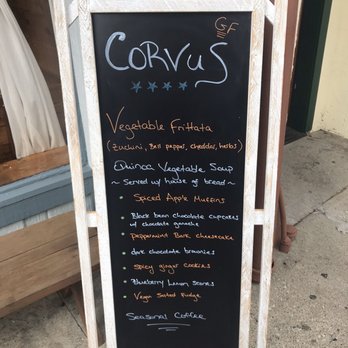 GF
CORVUS
Vegetable Frittata
(Zuchini, Bell pepper, cheddar, herbs)
Quinoa Vegetable Soup
~ Served w/ house gf bread ~
• Spiced Apple Muffins
• Black bean chocolate cupcakes
w/ chocolate ganache
• Peppermint Bark cheesecake
• dark chocolate brownies
• spicy ginger cookies
• Blueberry Lemon Scones
• Vegan Salted Fudge
Seasonal Coffee